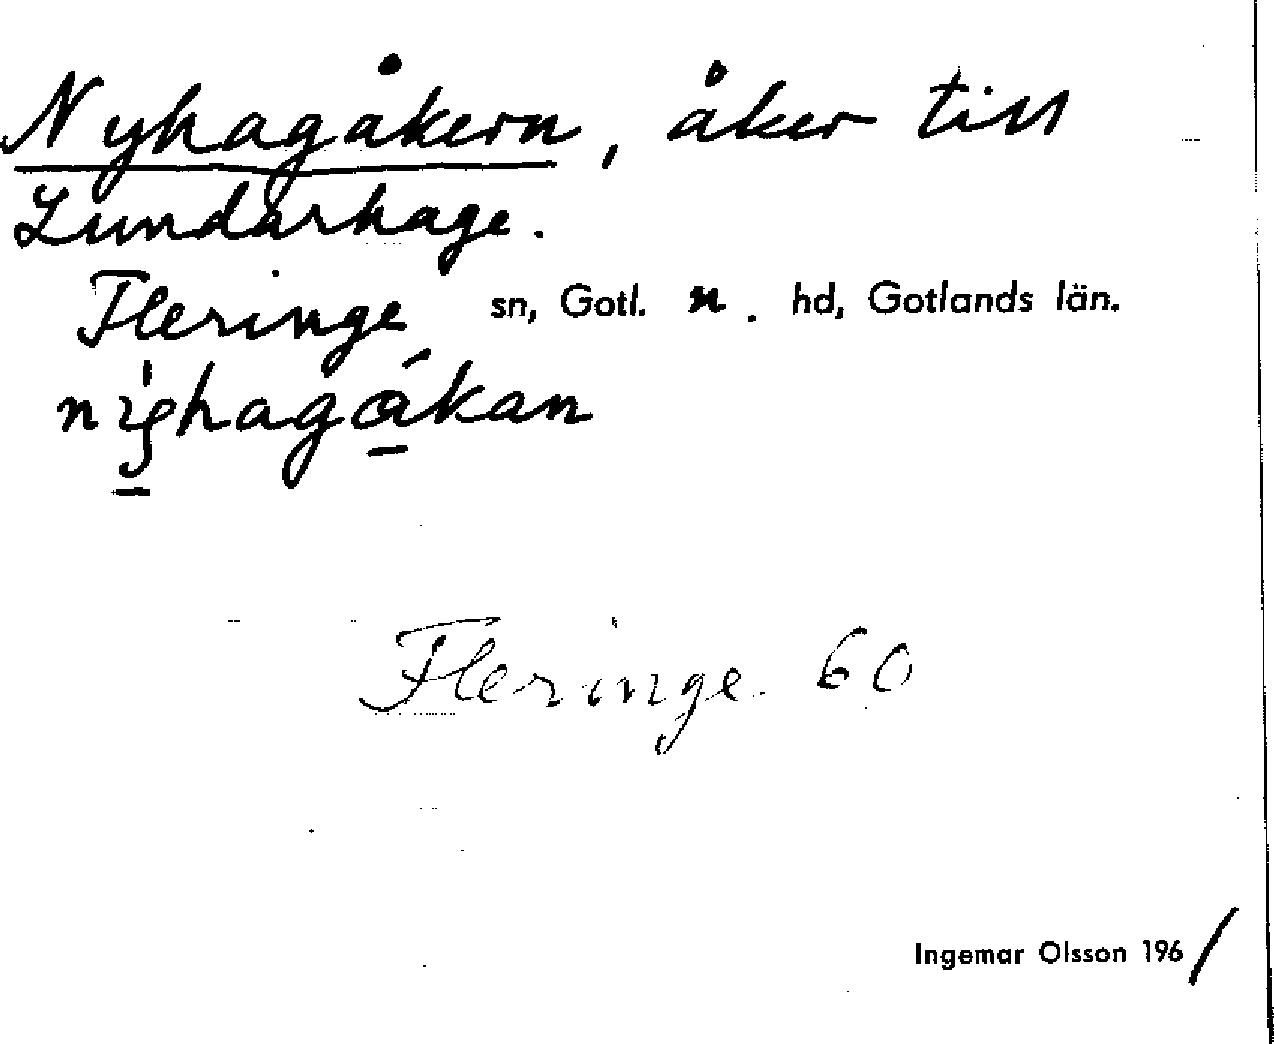 Nyhagåkern, åker till
Lundarhage.
Fleringe sn, Gotl. n. hd, Gotlands län.
Fleringe 60
Ingemar Olsson 1961